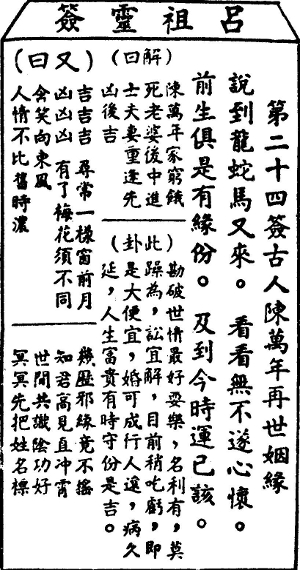 呂祖靈簽
第二十四簽古人陳萬年再世姻緣
說到龍蛇馬又來。看看無不遂心懷。
前生俱是有緣份。及到今時運已該。
(解曰)
陳萬年家窮餓
死老婆後中進
士夫妻重逢先
凶後吉
(此卦)
勘破世情最好耍樂,名利有,莫
躁為,訟宜解,目前稍吃虧,即
是大便宜,婚可成行人遲,病久
延,人生富貴有時守份是吉。
(又曰)
吉吉吉 尋常一樣窗前月
凶凶凶 有了梅花須不同
含笑向東風
人情不比舊時濃
幾歷邪緣竟不搖
知君高見直冲霄
世間共識陰功好
冥冥先把姓名標